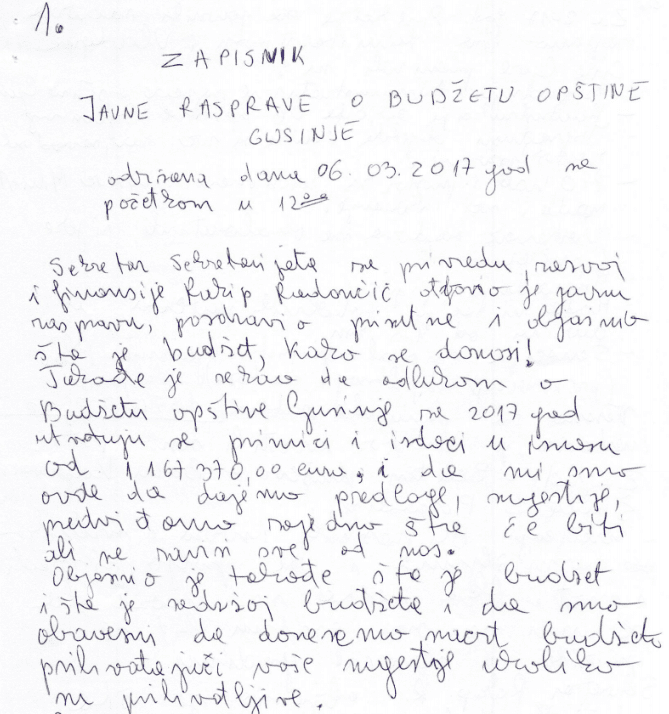 1.
ZAPISNIK
JAVNE RASPRAVE O BUDŽETU OPŠTINE
GUSINJE
održana dana 06. 03. 2017 god sa
početkom u 12 00
Sekretar Sekretarijata za privredu, razvoj
i finansije Ruzip Radončić otvorio je javnu
raspravu, pozdravio prisutne i objasnio
šta je budžet, kako se donosi!
Takođe je rekao da odlukom o
Budžetu opštine Gusinje za 2017 god
utvrđuju se primici i izdaci u iznosu
od 1 167 370,00 eura, i da mi smo
ovde da dajemo predloge, sugestije,
šta će biti
ali ne zavisi sve od nas.
Objasnio je takođe šta je budžet
i šta je sadržaj budžeta i da smo
obavezni da donesemo nacrt budžeta
prihvatajući vaše sugestije ukoliko
su prihvatljive.